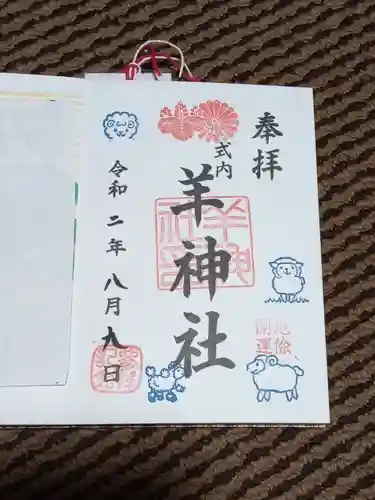 奉拝
式内
羊神社
令和二年八月九日
開運
厄除